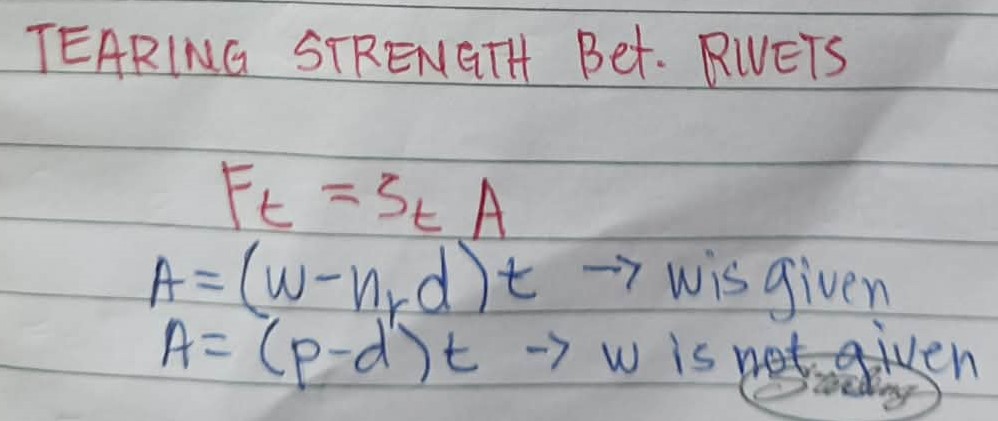 TEARING STRENGTH Bet. RIVETS
Ft = St A
A = (w - nrd)t -> w is given
A = (p-d)t -> w is not given